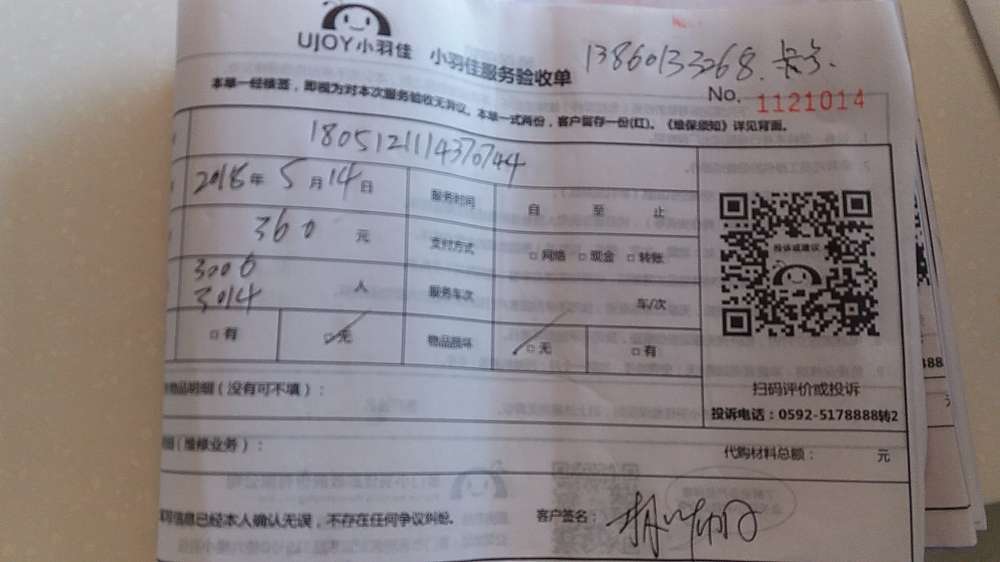 UJOY小羽佳 小羽佳服务验收单
13860133268.
No. 1121014
本单一经核签，即视为对本次服务验收无异议。本单一式两份，客户留存一份(红)。《维保须知》详见背面。
1805121114370744
2018年 5月14日 服务时间 自 至 止
360 元 支付方式 □网络 □现金 □转账
3006
3014 人 服务车次 车/次
□有 □无 物品损坏 □无 □有
投诉或建议
物品明细（没有可不填）：
扫码评价或投诉
投诉电话：0592-5178888转2
（维修业务）：
代购材料总额： 元
信息已经本人确认无误，不存在任何争议纠纷。 客户签名：